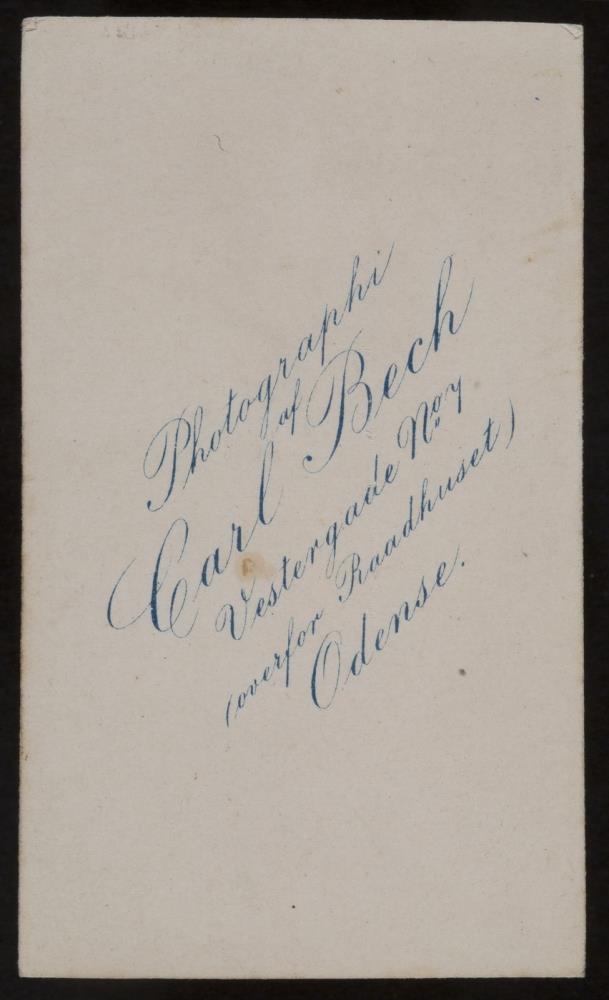 Photographi
af
Carl Bech
Vestergade No. 7
(overfor Raadhuset)
Odense.